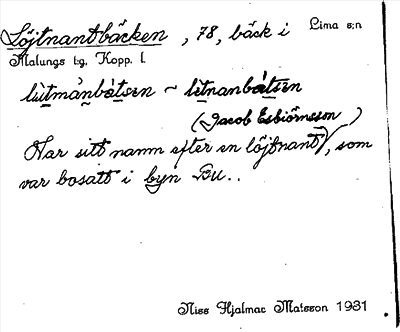 Löjtnantbäcken, 78, bäck i Lima s:n
Malungs tg. Kopp. l.
lùitmànbätsen ~ lètnanbätsen
(Jacob Esbiörnsson)
Har sitt namn efter en löjtnant), som
var bosatt i byn Bu..
Niss Hjalmar Matsson 1931